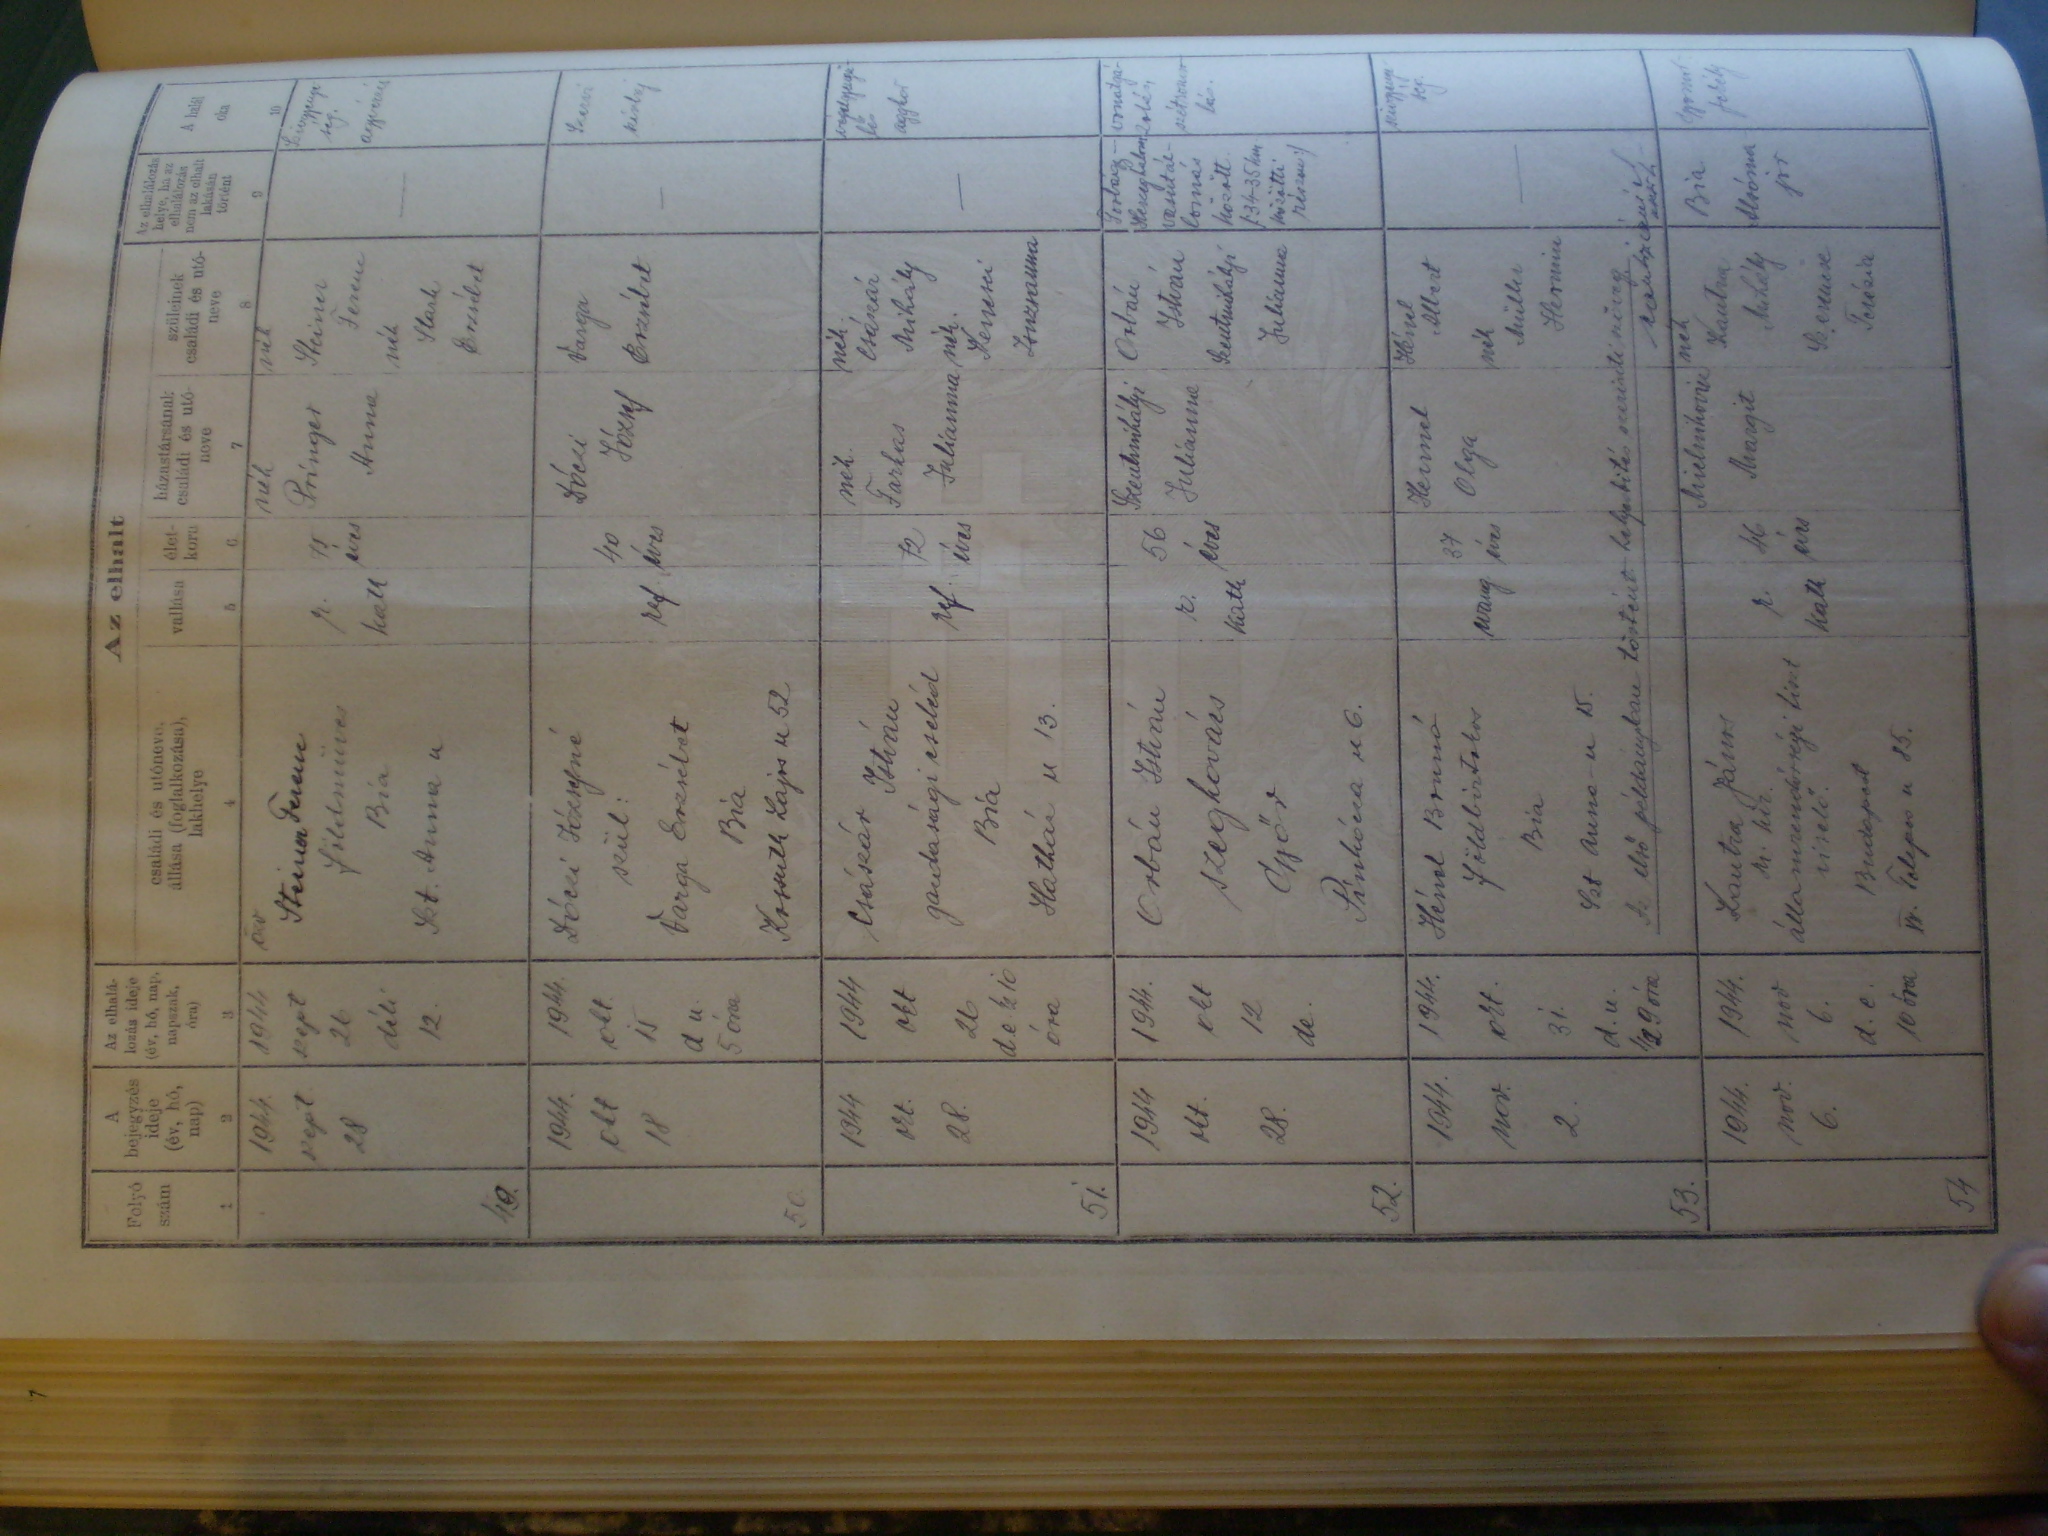 Az elhalt
Folyó szám
A bejegyzés ideje (év, hó, nap)
Az elhalálozás ideje (év, hó, nap, napszak, óra)
családi és utóneve, állása (foglalkozása), lakhelye
vallása
életkora
házastársának családi és utóneve
szüleinek családi és utóneve
Az elhalálozás helye, ha az elhalálozás nem az elhalt lakásán történt
A halál oka
1 2 3 4 5 6 7 8 9 10
49.
1944. szept. 28
1944 szept 26 déli 12.
Steiner Ferenc
földmüves
Bia
Szt. Anna u
r. kath
75 éves
néh
Pringer
Anna
néh
Steiner
Ferenc
néh
Stak
Erzsébet
50.
1944. okt 18
1944. okt. 15 d u. 5 óra
Dóczi Józsefné
szül:
Varga Erzsébet
Bia
Kossuth Lajos u 52
ref
40 éves
Dóczi
József
Varga
Erzsébet
Szervi
szívbaj
51.
1944 okt. 28.
1944 okt 26 de. óra
Császár István
gazdasági cseléd
Bia
Hatház u 13.
ref
72 éves
néh.
Farkas
Julianna
néh.
Császár
Mihály
néh.
Zsuzsanna
végelgyengülés
aggkór
52.
1944 okt. 28.
1944. okt 12 de.
Orbán István
szegkovács
Győr
u 6.
r. kath
56 éves
Szentmihályi
Julianna
Orbán
István
Szentmihályi
Julianna
Torbágy–
Herceghalom
vasútál-
lomás
között
/34-35 km
közötti
részen:/
53.
1944. nov. 2.
1944. okt. 31. d.u. 1/2 9 óra
Hénel Brunó
földbirtokos
Bia
Szt Anna u 15.
evang
37 éves
Hermel
Olga
Hénel
Albert
néh
Müller
Hermin
Az első példányban történt
54
1944. nov. 6.
1944. nov 6. d. e. 10 óra
Kautra János
m. kir.
államrendőrségi tiszt
viselő.
Budapest
IV. Telepes u 85.
r. kath
46 éves
Margit
néh
Kautra
Mihály
Terézia
Bia